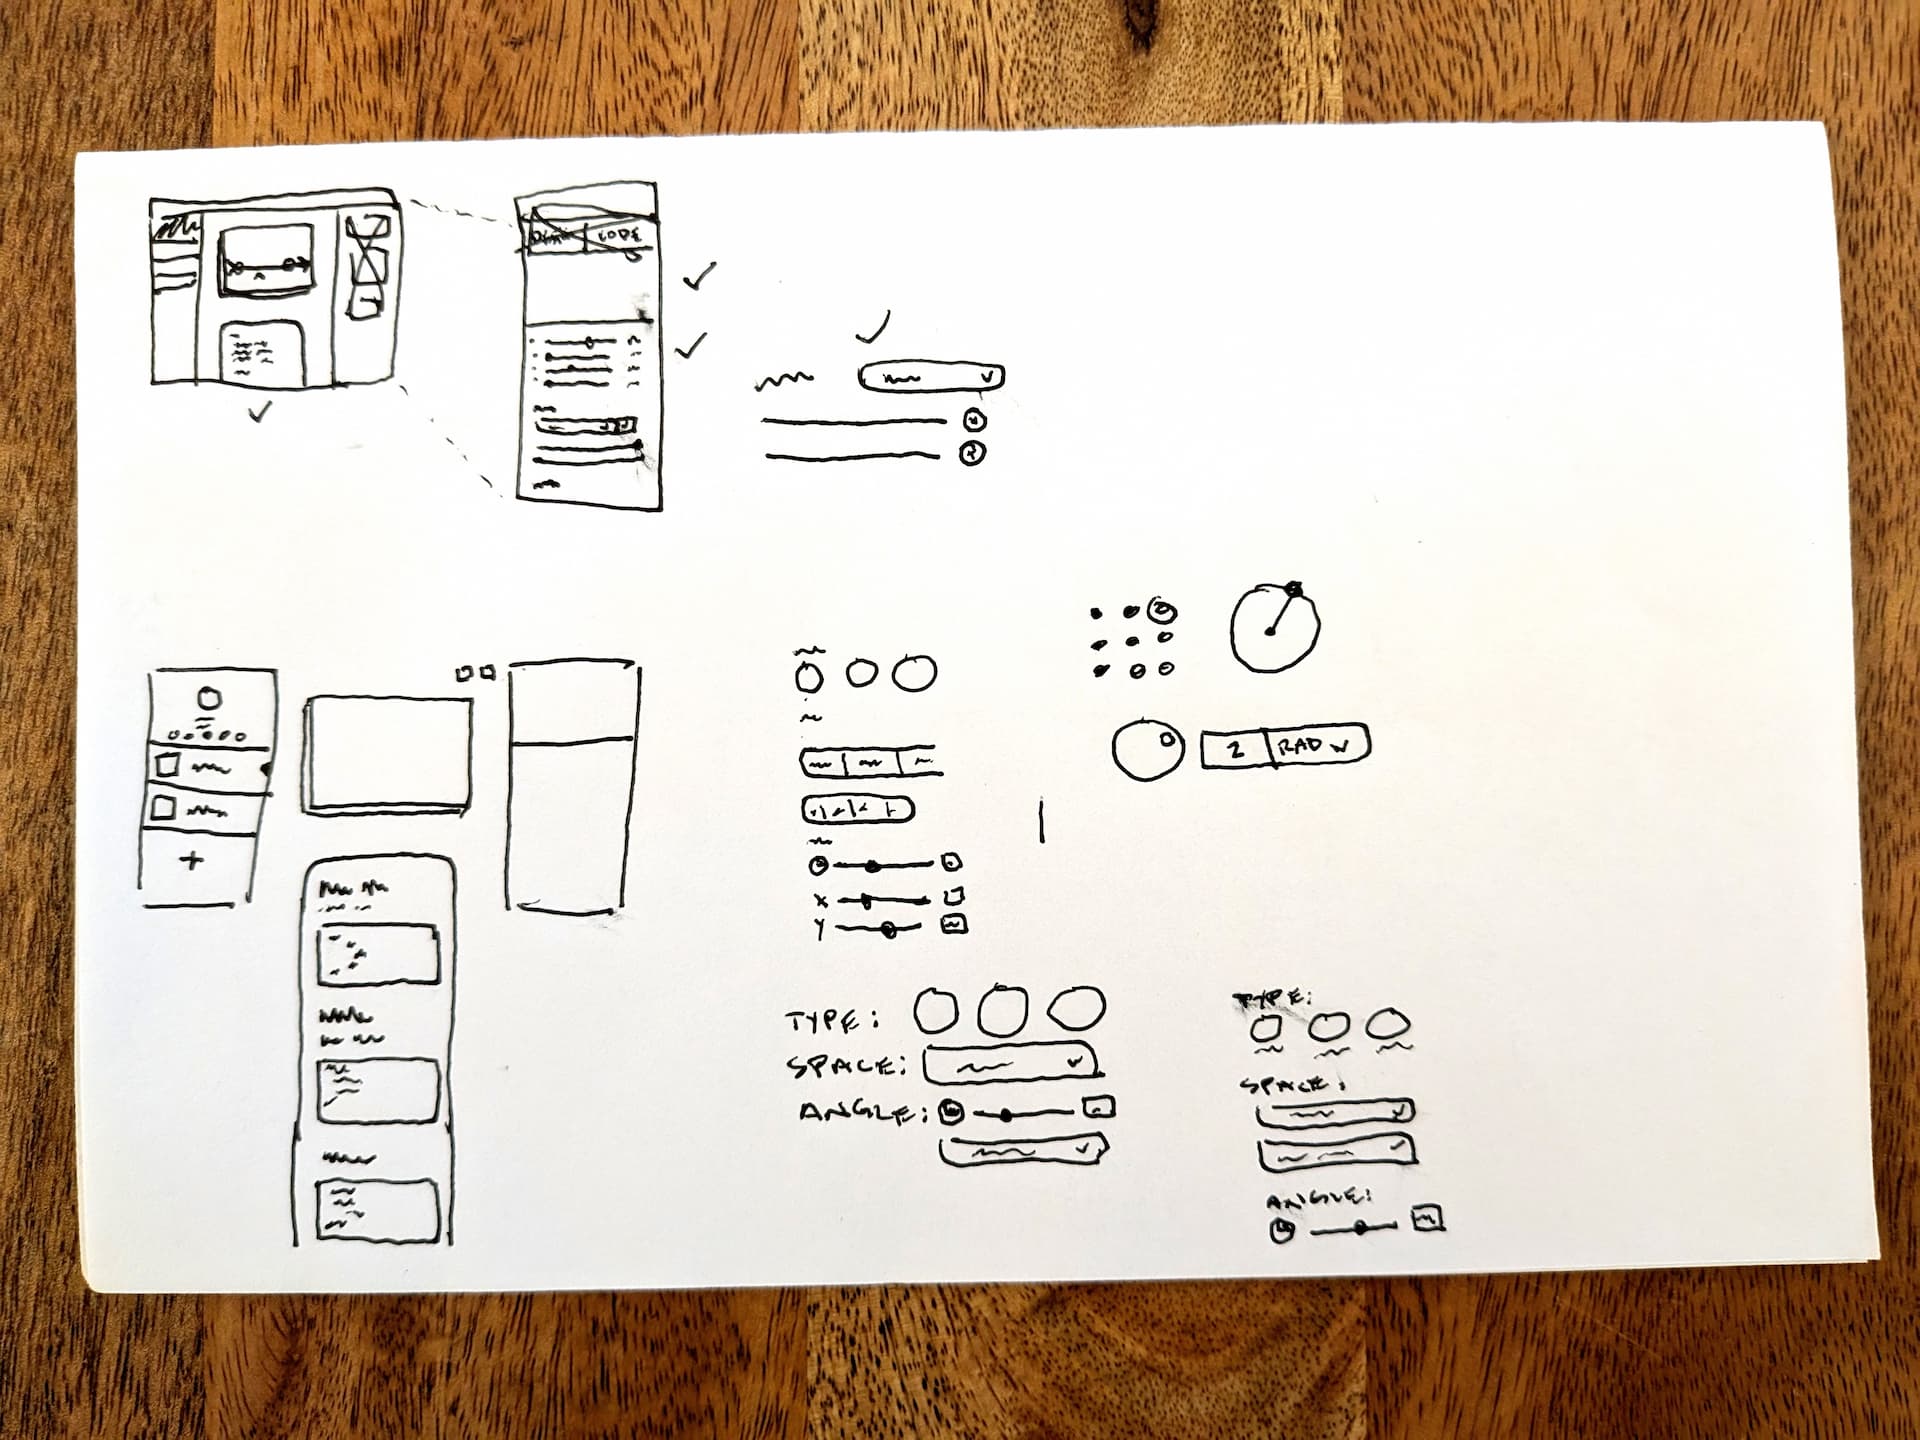 CODE
X
Y
2 RAD
TYPE:
SPACE:
ANGLE:
TYPE:
SPACE:
ANGLE: